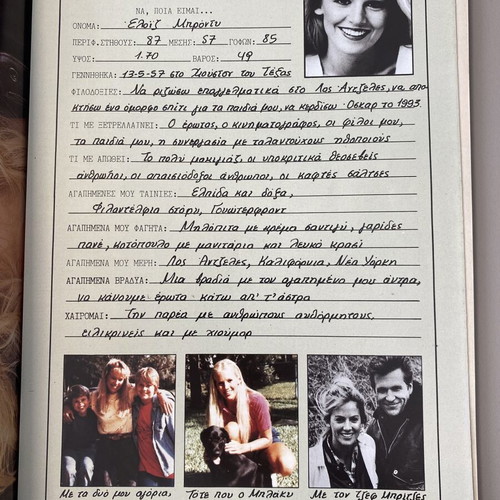 ΝΑ, ΠΟΙΑ ΕΙΜΑΙ...
ΟΝΟΜΑ: Ελοΐζ Μπρόντυ
ΠΕΡΙΦ.ΣΤΗΘΟΥΣ: 87 ΜΕΣΗΣ: 57 ΓΟΦΩΝ: 85
ΥΨΟΣ: 1.70 ΒΑΡΟΣ: 49
ΓΕΝΝΗΘΗΚΑ: 13-5-57 στο Χιούστον του Τέξας
ΦΙΛΟΔΟΞΙΕΣ: Να ριζώσω επαγγελματικά στο Λος Άντζελες, να απο
κτήσω ένα όμορφο σπίτι για τα παιδιά μου, να κερδίσω Όσκαρ το 1993.
ΤΙ ΜΕ ΞΕΤΡΕΛΛΑΙΝΕΙ: Ο έρωτας, ο κινηματογράφος, οι φίλοι μου,
τα παιδιά μου, η συνεργασία με ταλαντούχους ηθοποιούς
ΤΙ ΜΕ ΑΠΩΘΕΙ: Το πολύ μακιγιάζ, οι υποκριτικά θεοσεβείς
άνθρωποι, οι απαισιόδοξοι άνθρωποι, οι καφτές σάλτσες
ΑΓΑΠΗΜΕΝΕΣ ΜΟΥ ΤΑΙΝΙΕΣ: Ελπίδα και δόξα,
Φιλαντέλφια στόρυ, Γουώτερφροντ
ΑΓΑΠΗΜΕΝΑ ΜΟΥ ΦΑΓΗΤΑ: Μηλόπιτα με κρέμα σαντιγύ, γαρίδες
πανέ, κοτόπουλο με μανιτάρια και λευκό κρασί
ΑΓΑΠΗΜΕΝΑ ΜΟΥ ΜΕΡΗ: Λος Άντζελες, Καλιφόρνια, Νέα Υόρκη
ΑΓΑΠΗΜΕΝΑ ΒΡΑΔΥΑ: Μια βραδιά με τον αγαπημένο μου άντρα,
να κάνουμε έρωτα κάτω απ' τ' άστρα
ΧΑΙΡΟΜΑΙ: Την παρέα με ανθρώπους αυθόρμητους,
ειλικρινείς και με χιούμορ
Με τα δυό μου αγόρια,
Τότε που ο Μπλάκυ
Με τον Τζεφ Μπρίτζες